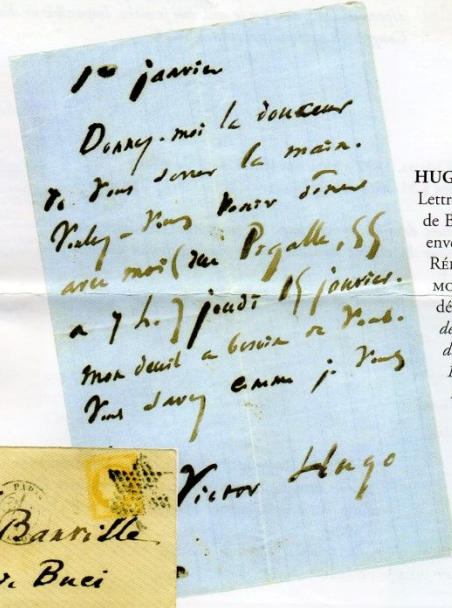 1er janvier
Donnez-moi la douceur
de vous serrer la main.
Voulez-vous venir dîner
avec moi (rue Pigalle, 55
à 7 h.) jeudi 15 janvier.
Mon deuil a besoin de vous.
Vous savez comme je vous
Victor Hugo
PARIS
Banville
de Buci
HUG
Lettr
de B
enve
RÉ
MO
dé
de
d